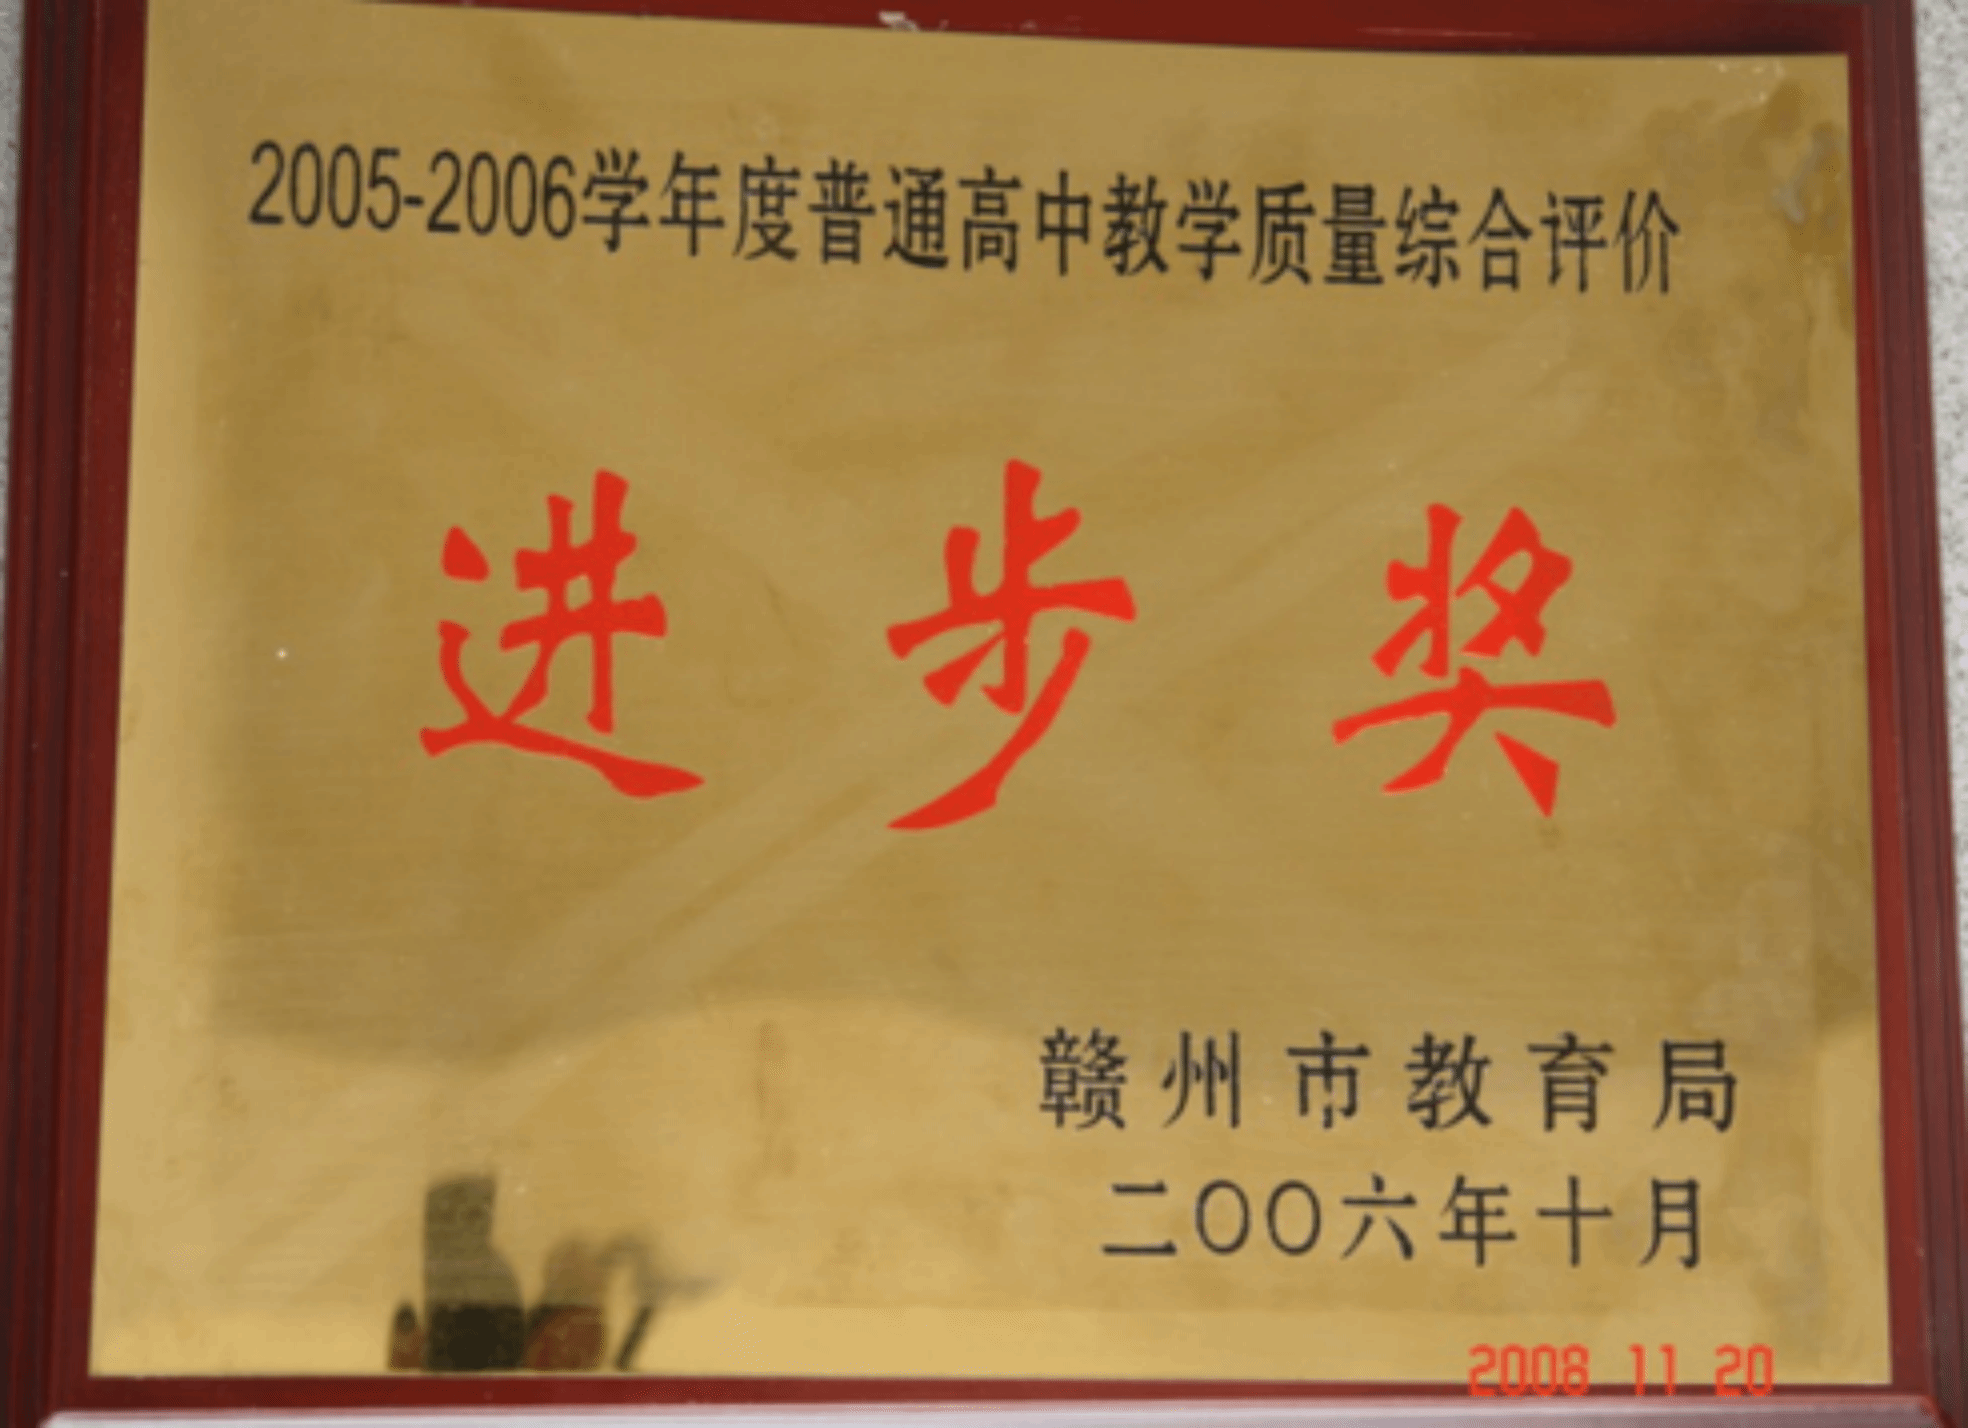 2005-2006学年度普通高中教学质量综合评价
进步奖
赣州市教育局
二〇〇六年十月
2008 11 20